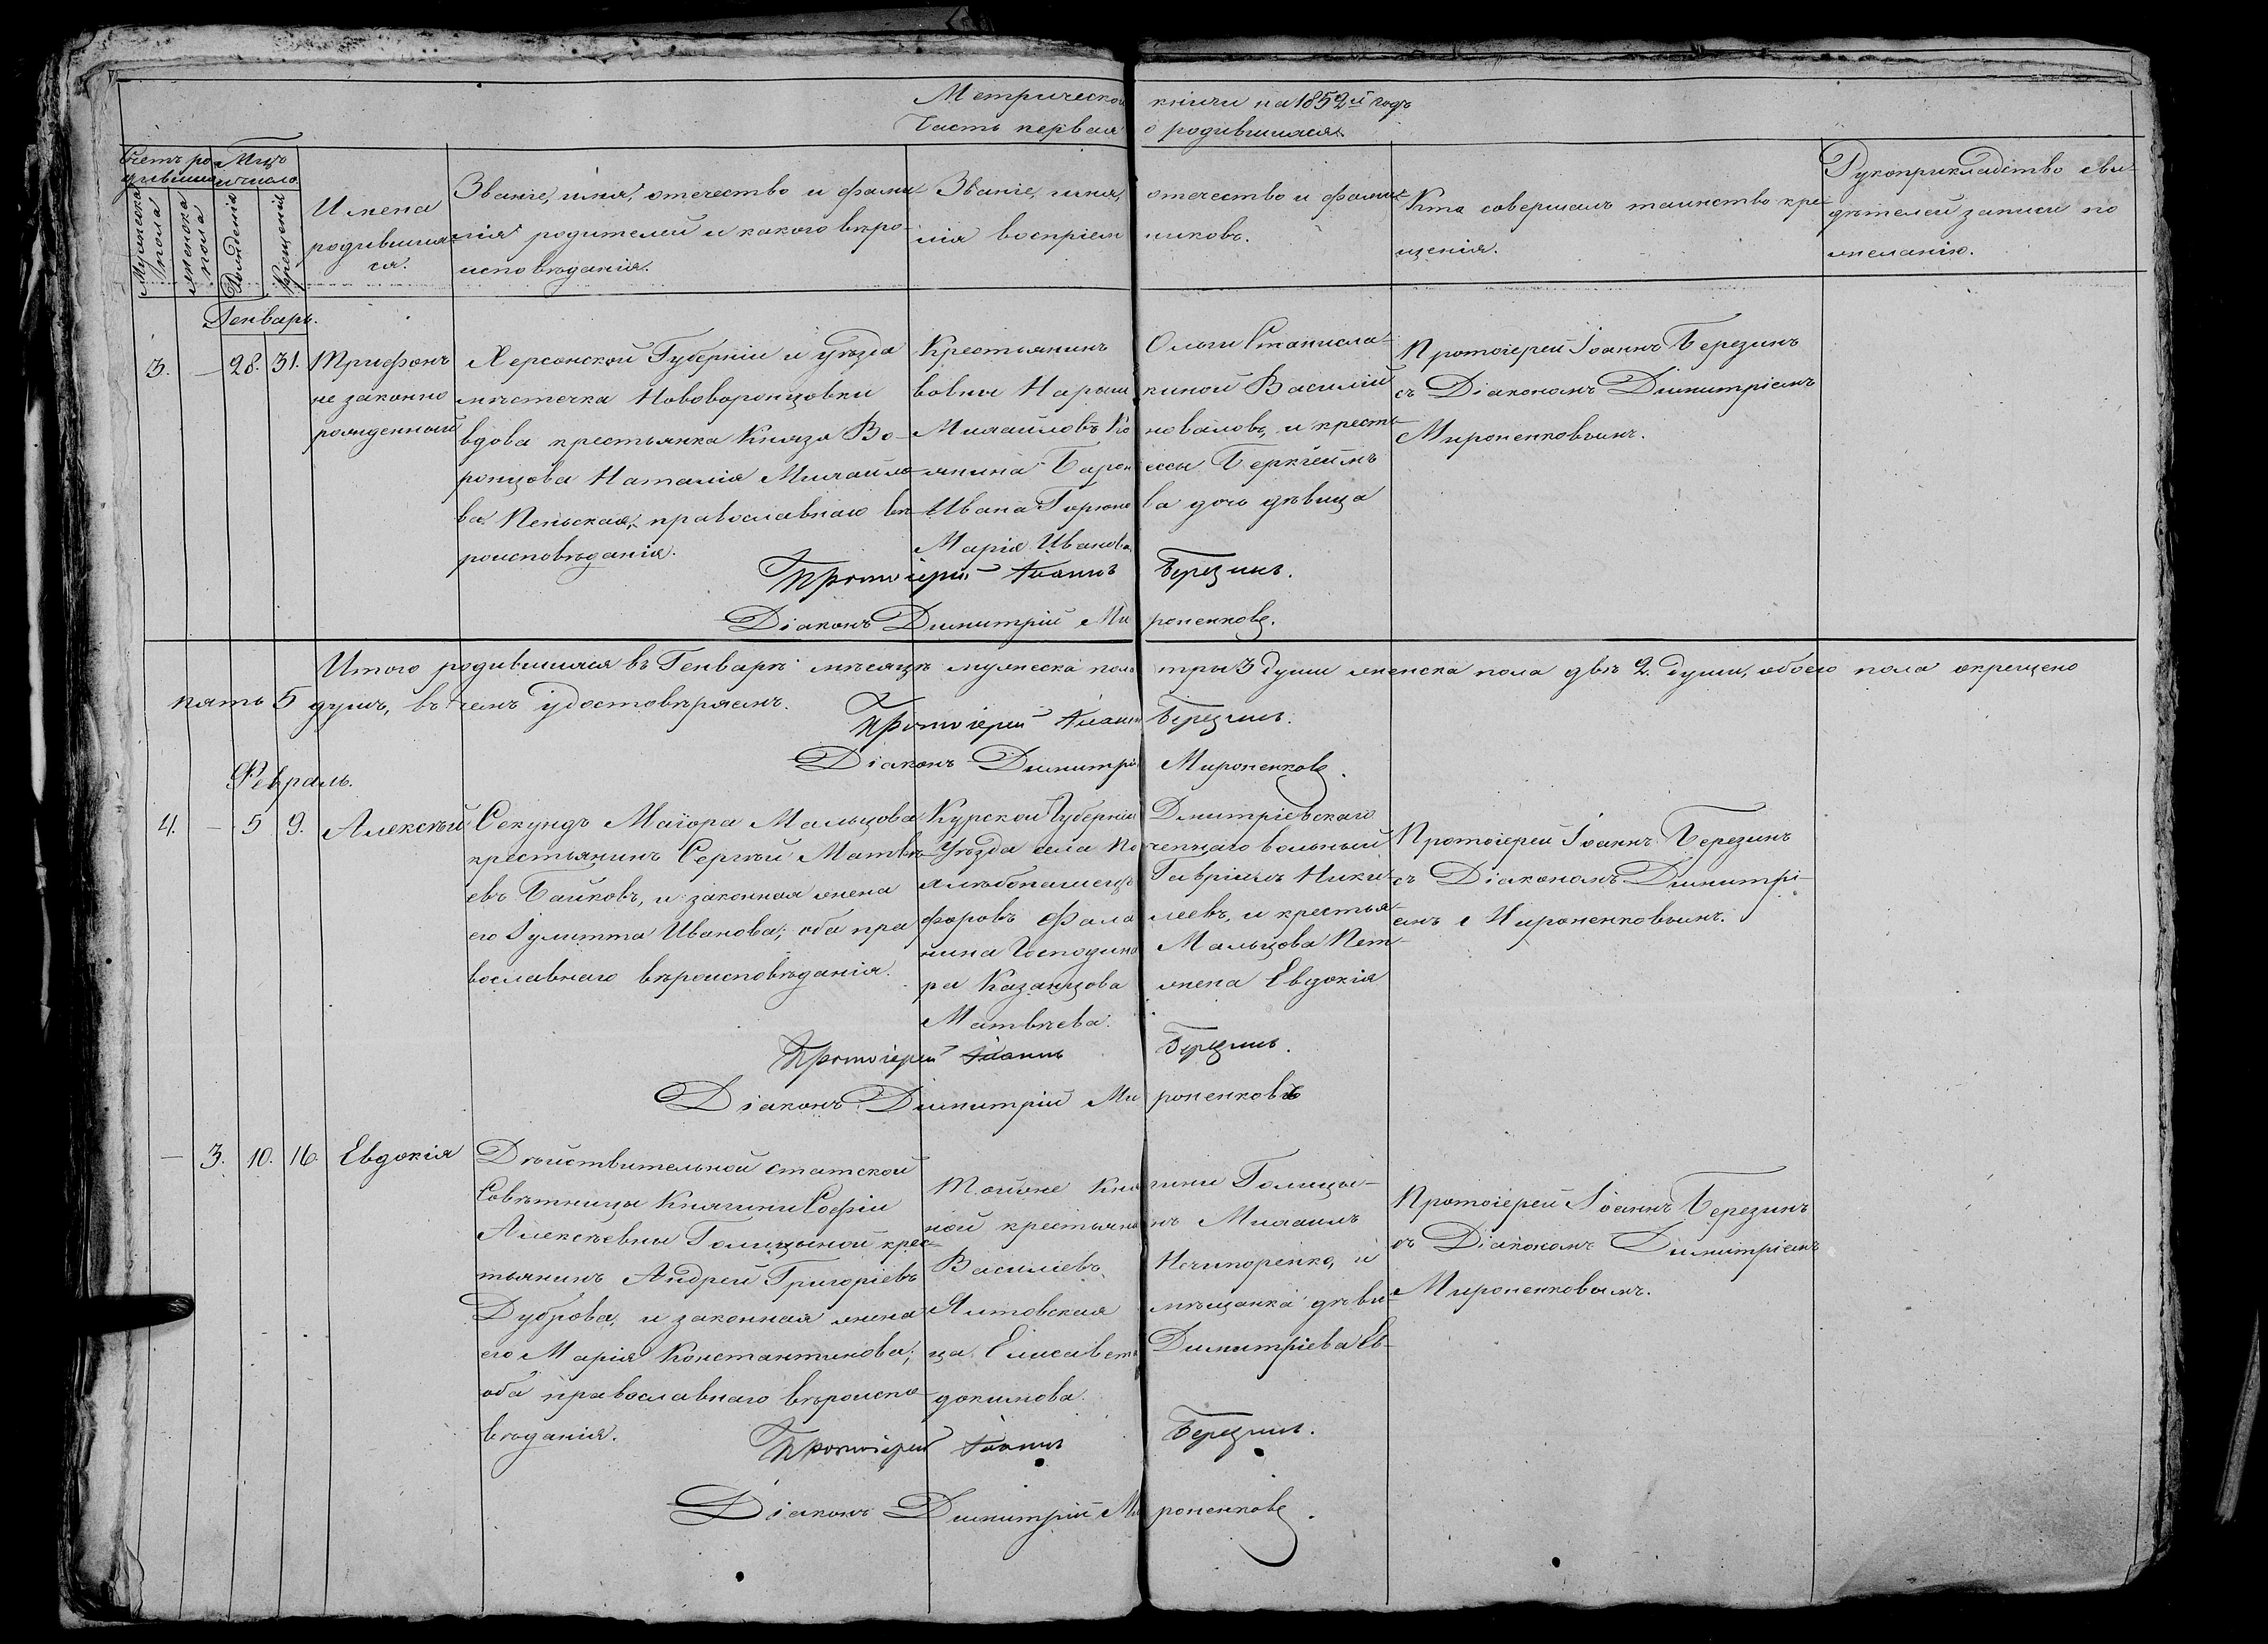 Метрической книги на 1852й годъ
Часть первая о родившихся.
Счетъ ро-
дившихся
Мужеска пола
женска пола
Мцъ
и число
Рожденія
Крещенія
Имена
родивших-
ся.
Званіе, имя, отечество и фами-
лія родителей и какого вѣро-
исповѣданія.
Званіе, имя, отечество и фами-
лія воспріемниковъ.
Кто совершалъ таинство кре-
щенія.
Рукоприкладство сви-
дѣтелей записи по
желанію.
Генварь.
3. — 28. 31.
Трифонъ
не законно
рожденный
Херсонской Губерніи и уѣзда
мѣстечка Нововоронцовки
вдова крестьянка Князя Во-
ронцова Наталія Михайло-
ва Пеньская, православнаго вѣ-
роисповѣданія.
Крестьянинъ Ольги Станисла-
вовны Нарышкиной Василій
Михайловъ Коноваловъ, и кресть-
янина Баронессы Беркгеймъ
Ивана Горюнова дочь дѣвица
Марія Иванова
Протоіерей Іоаннъ Березинъ
съ Діакономъ Димитріемъ
Мироненковымъ.
Протоіерей Іоаннъ Березинъ.
Діаконъ Димитрій Мироненковъ.
Итого родившихся въ Генварѣ мѣсяцѣ мужеска пола три 3 души женска пола двѣ 2. души, обоего пола окрещено
пять 5 душъ, въ чемъ удостовѣряемъ.
Протоіерей Іоаннъ Березинъ.
Діаконъ Димитрій Мироненковъ.
Февраль.
4. — 5 9. Алексѣй
Секундъ Маіора Мальцова
крестьянинъ Сергѣй Матвѣ-
евъ Байковъ, и законная жена
его Іулитта Иванова; оба пра-
вославнаго вѣроисповѣданія.
Курской Губерніи Дмитріевскаго
Уѣзда села Почепнаго вольный
хлѣбопашецъ Гавріилъ Ники-
форовъ Фалалеевъ, и крестья-
нина Господина Мальцова Пет-
ра Казанцова жена Евдокія
Матвѣева.
Протоіерей Іоаннъ Березинъ
съ Діакономъ Димитрі-
емъ Мироненковымъ.
Протоіерей Іоаннъ Березинъ.
Діаконъ Димитрій Мироненковъ
— 3. 10. 16. Евдокія
Дѣйствительной статской
Совѣтницы Княгини Софіи
Алексѣевны Голицыной крес-
тьянинъ Андрей Григоріевъ
Дуброва, и законная жена
его Марія Константинова;
оба православнаго вѣроиспо-
вѣданія.
Тойже Княгини Голицы-
ной крестьянинъ Михаилъ
Василіевъ Нечипоренко, и
Ялтовская мѣщанка дѣви-
ца Елисаветъ Димитріева Ев-
докимова.
Протоіерей Іоаннъ Березинъ
съ Діакономъ Димитріемъ
Мироненковымъ.
Протоіерей Іоаннъ Березинъ.
Діаконъ Димитрій Мироненковъ.